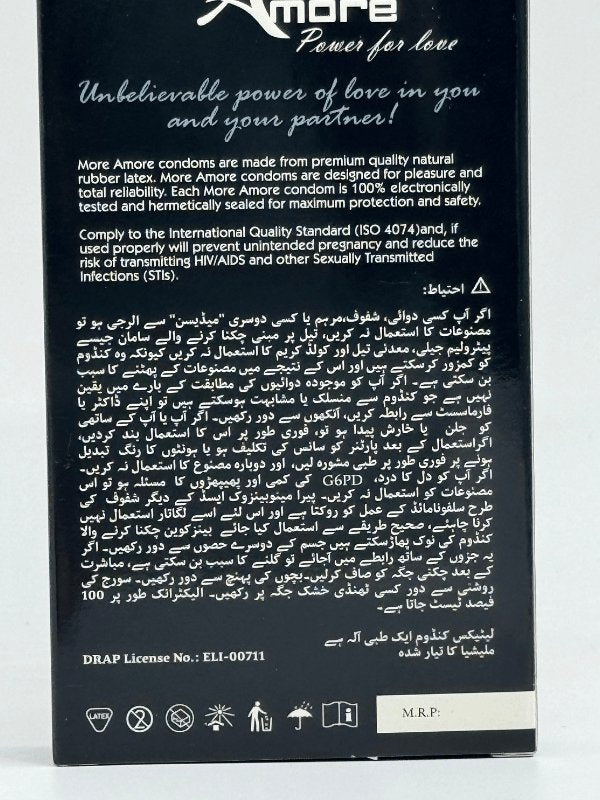 Amore
Power for love
Unbelievable power of love in you
and your partner!
More Amore condoms are made from premium quality natural
rubber latex. More Amore condoms are designed for pleasure and
total reliability. Each More Amore condom is 100% electronically
tested and hermetically sealed for maximum protection and safety.
Comply to the International Quality Standard (ISO 4074)and, if
used properly will prevent unintended pregnancy and reduce the
risk of transmitting HIV/AIDS and other Sexually Transmitted
Infections (STIs).
احتیاط:
اگر آپ کسی دوائی، شفوف،مرہم یا کسی دوسری "میڈیسن" سے الرجی ہو تو
مصنوعات کا استعمال نہ کریں، تیل پر مبنی چکنا کرنے والے سامان جیسے
پیٹرولیم جیلی، معدنی تیل اور کولڈ کریم کا استعمال نہ کریں کیونکہ وہ کنڈوم
کو کمزور کرسکتے ہیں اور اس کے نتیجے میں مصنوعات کے پھٹنے کا سبب
بن سکتی ہے۔ اگر آپ کو موجودہ دوائیوں کی مطابقت کے بارے میں یقین
نہیں ہے جو کنڈوم سے منسلک یا مشابہت ہوسکتے ہیں تو اپنے ڈاکٹر یا
فارماسسٹ سے رابطہ کریں، آنکھوں سے دور رکھیں۔ اگر آپ یا آپ کے ساتھی
کو جلن یا خارش پیدا ہو تو، فوری طور پر اس کا استعمال بند کردیں،
اگراستعمال کے بعد پارٹنر کو سانس کی تکلیف ہو یا ہونٹوں کا رنگ تبدیل
ہونے پر فوری طور پر طبی مشورہ لیں، اور دوبارہ مصنوع کا استعمال نہ کریں۔
اگر آپ کو دل کا درد، G6PD کی کمی اور پھیپھڑوں کا مسئلہ ہو تو اس
مصنوعات کو استعمال نہ کریں۔ پیرا مینوبینزوک ایسڈ کے دیگر شفوف کی
طرح سلفونامائڈ کے عمل کو روکتا ہے اور اس لئے اسے لگاتار استعمال نہیں
کرنا چاہئے، صحیح طریقے سے استعمال کیا جائے بینزکوین چکنا کرنے والا
کنڈوم کی نوک پھاڑسکتے ہیں جسم کے دوسرے حصوں سے دور رکھیں۔ اگر
یہ جزوں کے ساتھ رابطے میں آجائے تو گلنے کا سبب بن سکتی ہے، مباشرت
کے بعد چکنی جگہ کو صاف کرلیں۔بچوں کی پہنچ سے دور رکھیں۔ سورج کی
روشنی سے دور کسی ٹھنڈی خشک جگہ پر رکھیں۔ الیکٹرانک طور پر 100
فیصد ٹیسٹ جاتا ہے۔
لیٹیکس کنڈوم ایک طبی آلہ ہے
ملیشیا کا تیار شدہ
DRAP License No.: ELI-00711
LATEX
2
M.R.P: